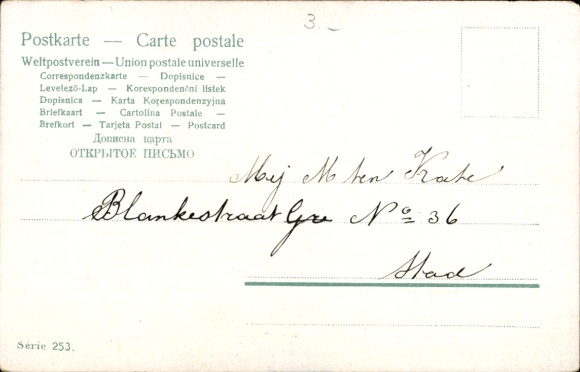 3.-
Postkarte — Carte postale
Weltpostverein — Union postale universelle
Correspondenzkarte — Dopisnice —
Levelező-Lap — Korespondenční lístek
Dopisnica — Karta Korespondenzyjna
Briefkaart — Cartolina Postale —
Brefkort — Tarjeta Postal — Postcard
Дописна карта
ОТКРЫТОЕ ПИСЬМО
Mej M ten Kate
Blankestraat Gre No 36
Stad
Série 253.